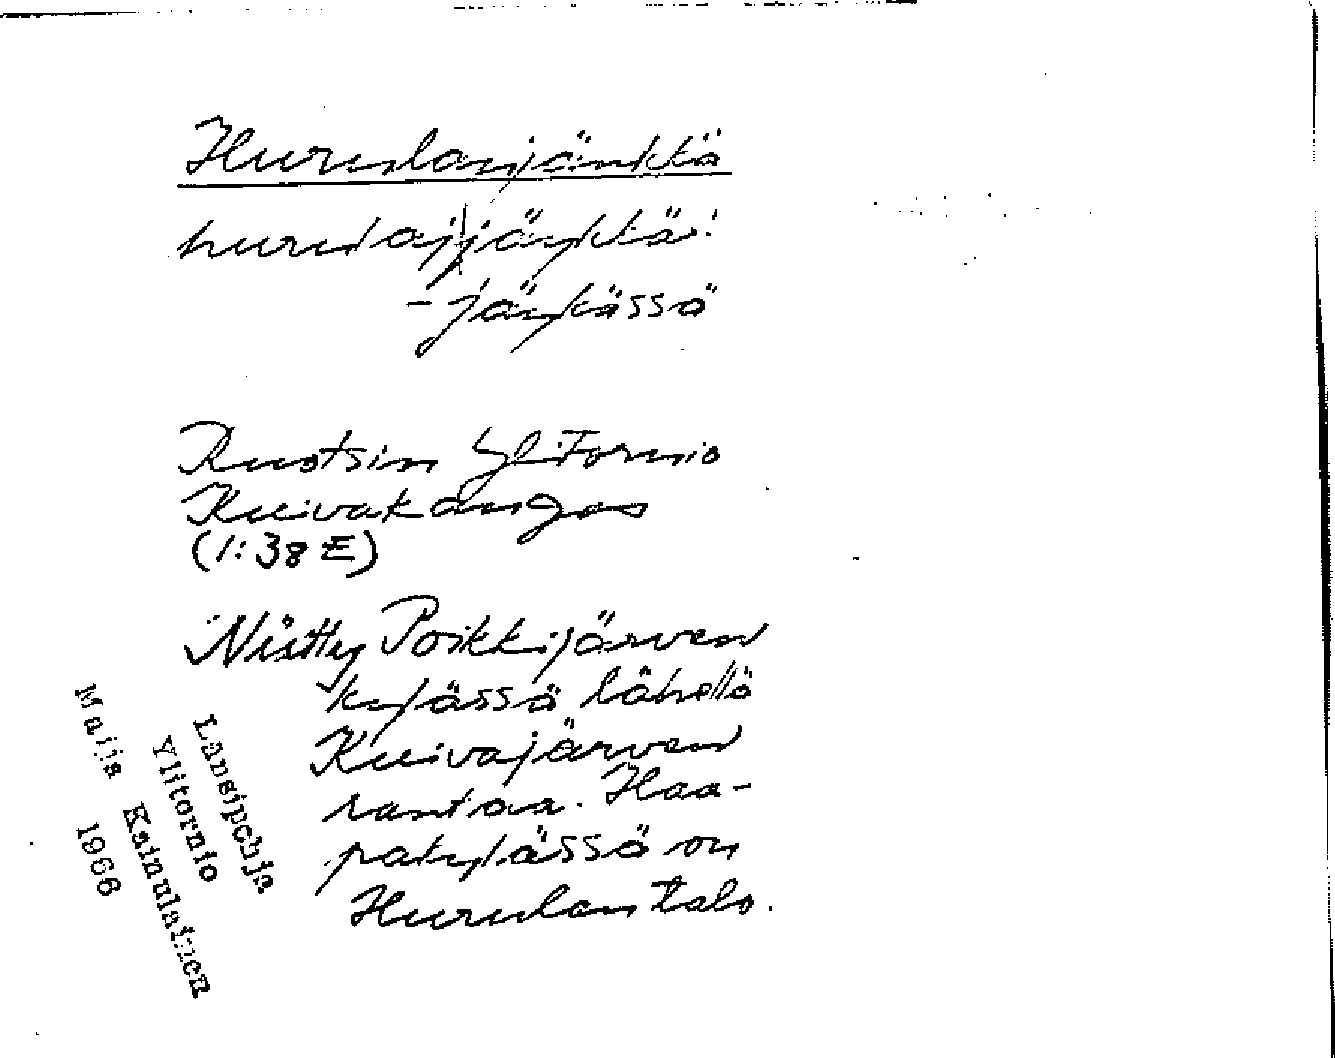 Hurulanjänkkä
hurulaj|jäŋkkä:
-jäŋkässä
Ruotsin Ylitornio
Kuivakangas
(1:38 E)
Niitty Poikkijärven
kylässä lähellä
Kuivajärven
rantaa. Haa-
pakylässä on
Hurulan talo.
Länsipohja
Ylitornio
Maija Kainulainen
1966